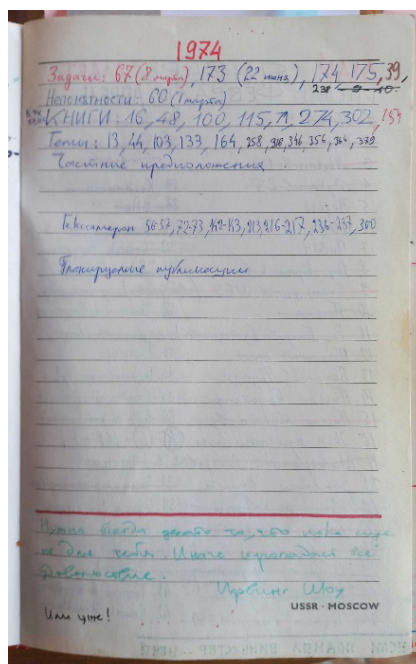 1974
Задачи: 67 (8 марта), 173 (22 июня), 174 175, 39,
238
Непонятности: 60 (1 марта)
КНИГИ: 16, 48, 100, 115, 71, 274, 302, 154
Гепы: 13, 44, 103, 133, 164, 258, 310, 346, 354, 364, 379
Частные предположения
Гексамерон 56-57, 72-73, 142-143, 213, 216-217, 236-237, 300
Планируемые публикации
Нужно всегда делать то, что пока еще
не для тебя. Иначе пропадает все
удовольствие.
Ирвинг Шоу
USSR · MOSCOW
Или уже!